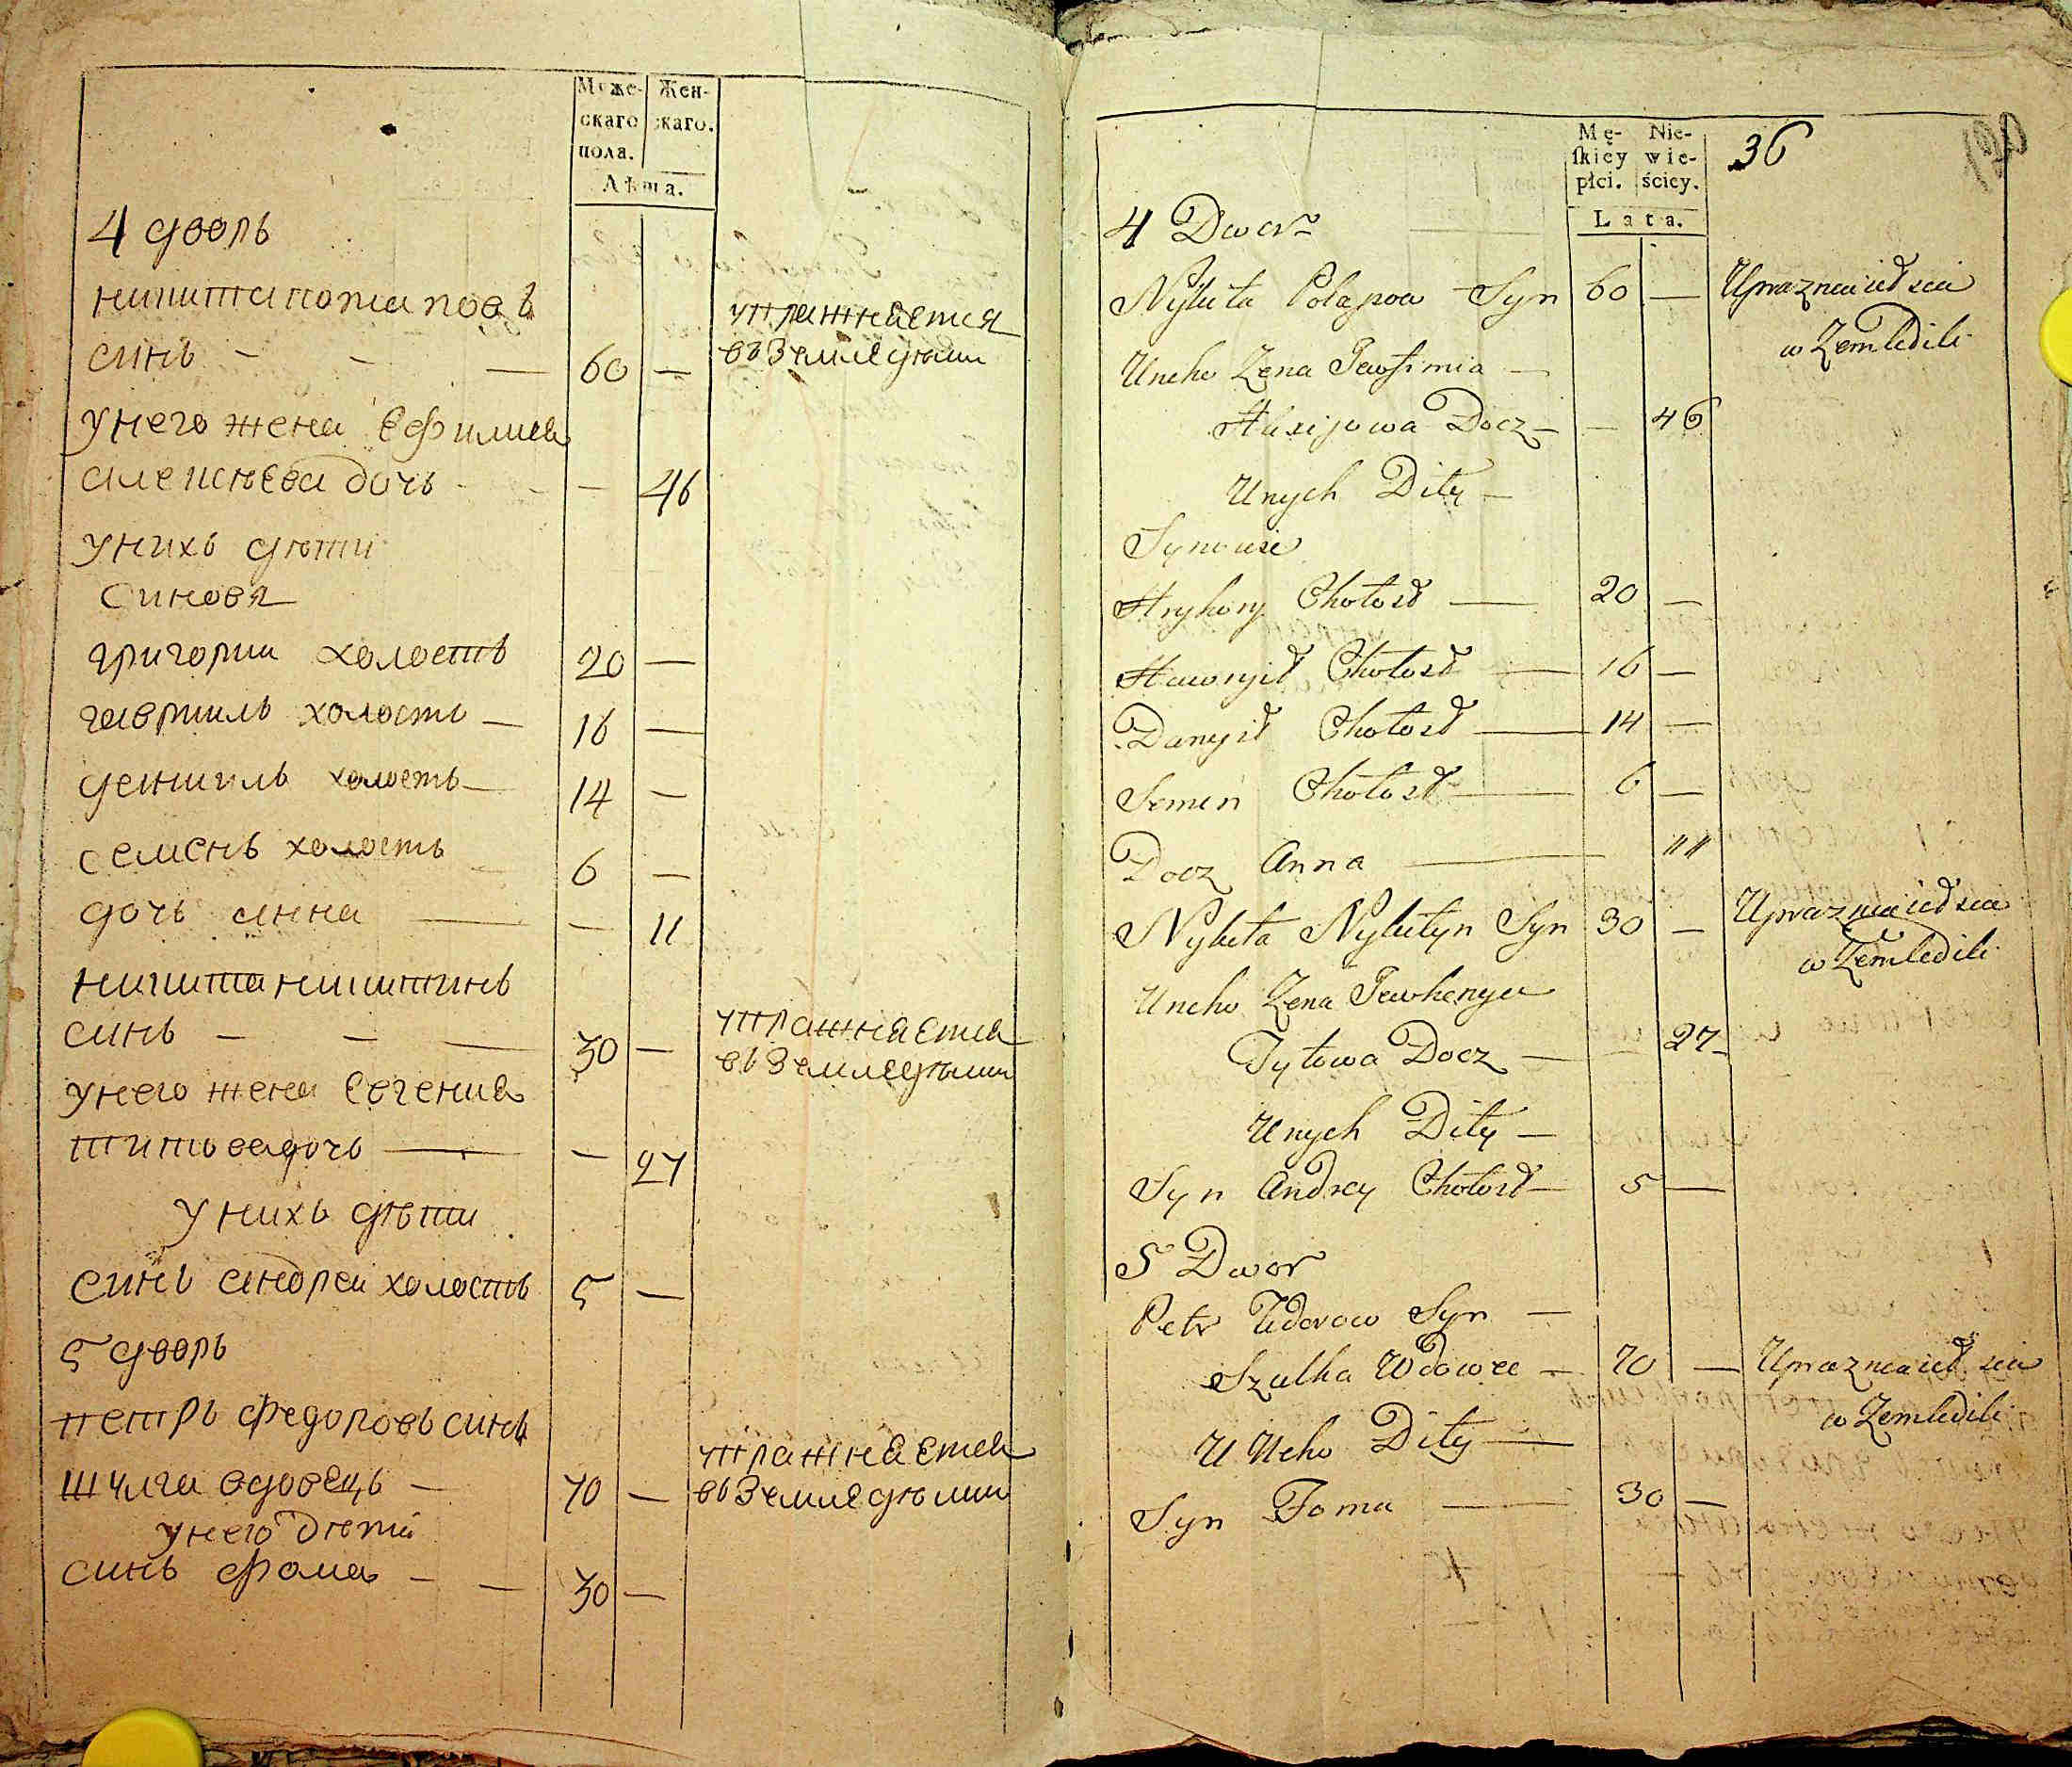 Муже-
скаго
пола.
Жен-
скаго.
Лѣта.
4 дворъ
никита потаповъ
синъ — — — 60 —
упражняется
въ Земледѣлии
унего жена Ефимиа
алексѣева дочь — — — 46
унихъ дѣти
Синовя
григории холостъ 20 —
гавриилъ холостъ — 16 —
данииль холость — 14 —
семенъ холость 6 —
дочь анна — — 11
никита никитинъ
синъ — — — 30 —
упражняется
въ Земледѣлии
унего жена Евгениа
титова дочь — — 27
унихъ дѣти
синъ андреи холостъ 5 —
5 дворъ
петръ федоровъ синъ
шулга вдовецъ — 70 —
упражняется
въ Земледѣлии
унего дѣти
синъ фома — — 30 —
Mę-
skiéy
płci.
Nie-
wie-
ściey.
Lata.
36
4 Dwor
Nykita Potapow Syn 60 — Uprazniaiećsia
w Zemledili
Uneho Zena Jewfimia —
Alexijowa Docz — — 46
Unych Dity —
Synowie
Hryhory Chołost — 20 —
Hawryił Chołost — 16 —
Danyił Chołost — 14 —
Semen Chołost — 6 —
Docz Anna — 11
Nykita Nykityn Syn 30 — Uprazniaiećsia
w Zemledili
Uneho Zena Jewhenya
Tytowa Docz — — 27
Unych Dity —
Syn Andrey Chołost — 5 —
5 Dwor
Petr Fidorow Syn —
Szulha Wdowec — 70 — Uprazniaiećsia
w Zemledili
U Neho Dity —
Syn Foma — 30 —